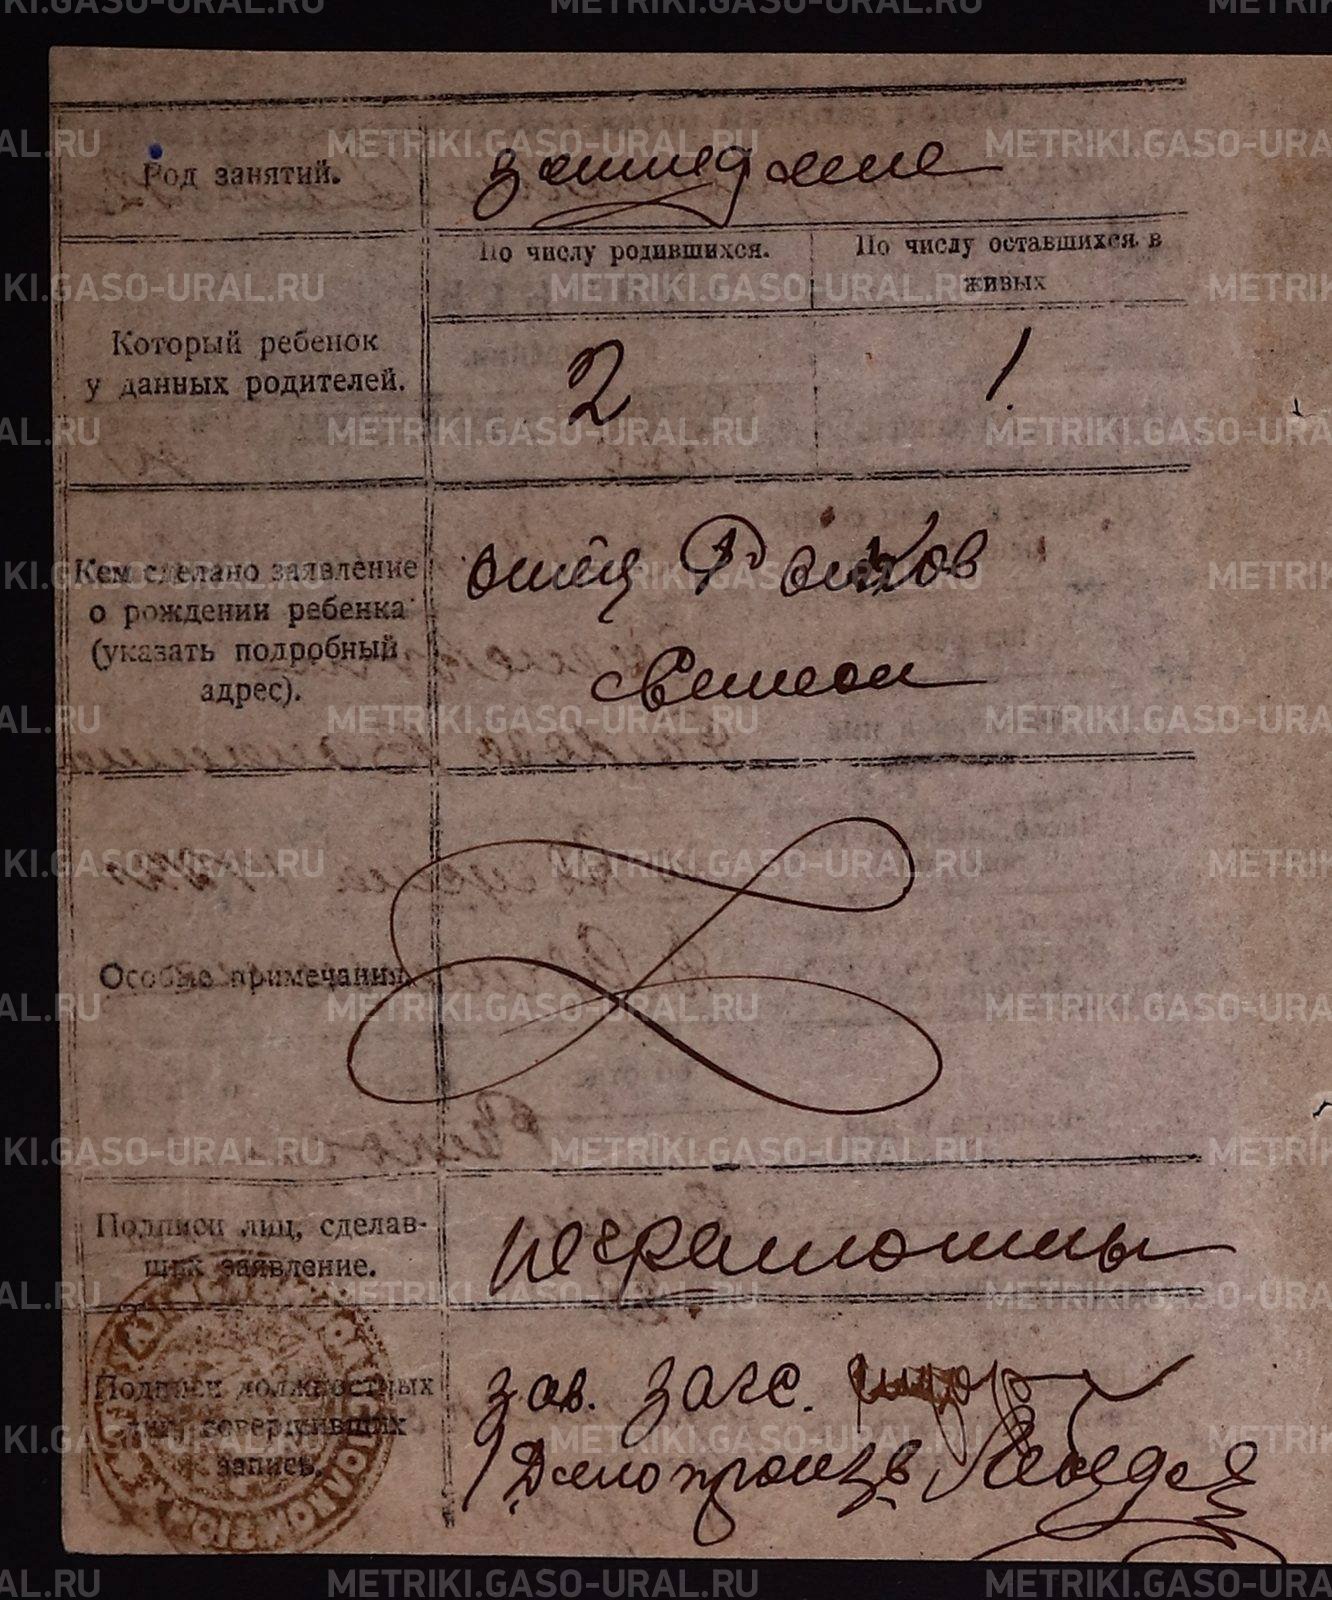 METRIKI.GASO-URAL.RU
Род занятий.
земледелие
Который ребенок
у данных родителей.
По числу родившихся.
По числу оставшихся в
живых
2
1.
Кем сделано заявление
о рождении ребенка
(указать подробный
адрес).
отец
Особые примечания.
Подписи лиц, сделав-
ших заявление.
неграмотны
Подписи должностных
лиц, совершивших
запись.
зав. загс.
Делопроизв